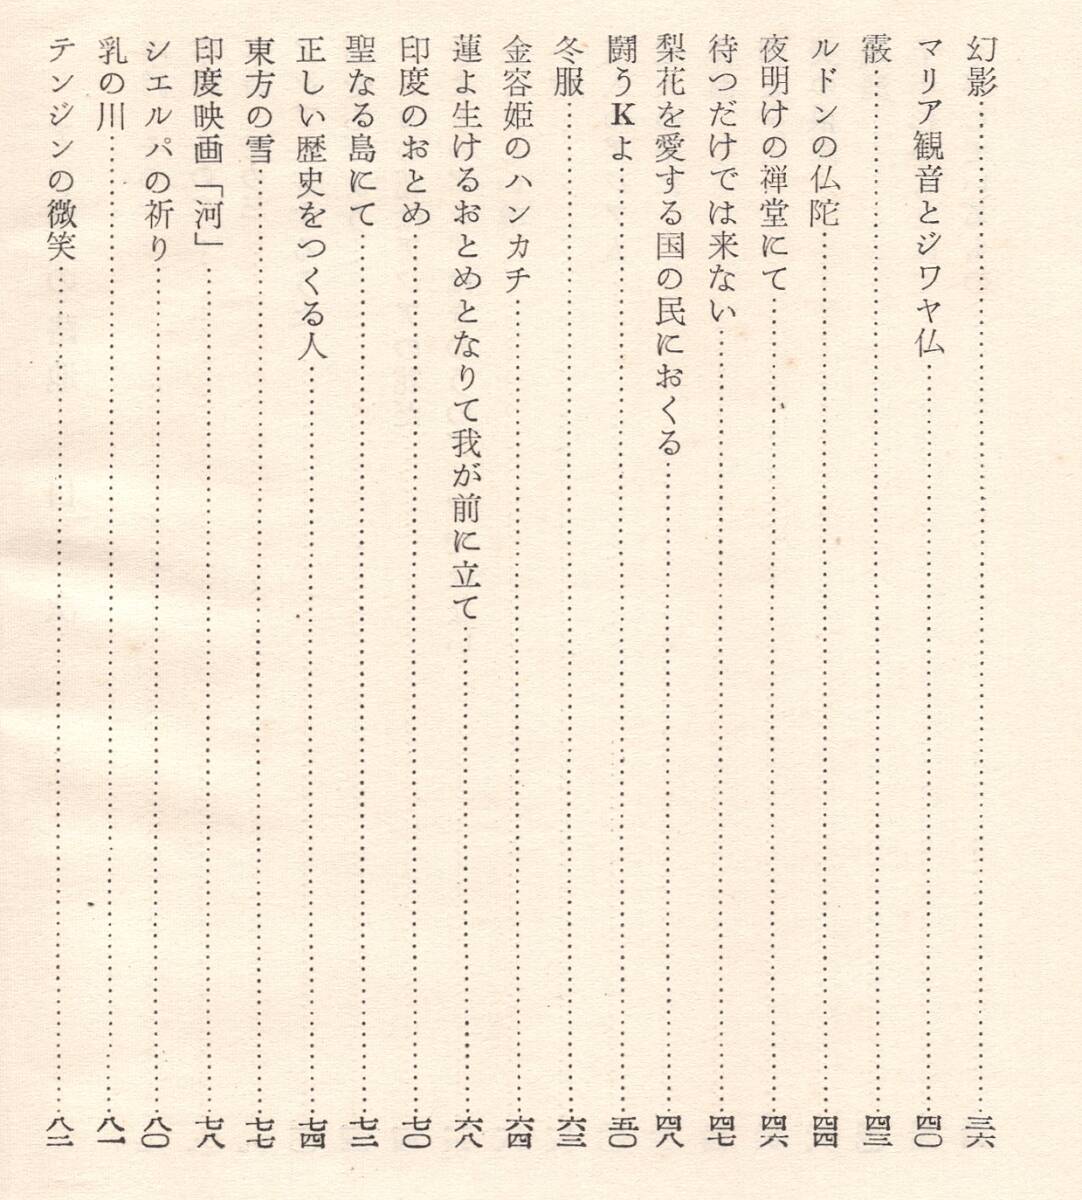 幻影……三六
マリア観音とジワヤ仏……四〇
霰……四三
ルドンの仏陀……四四
夜明けの禅堂にて……四六
待つだけでは来ない……四七
梨花を愛する国の民におくる……四八
闘うKよ……五〇
冬服……六三
金容姫のハンカチ……六四
蓮よ生けるおとめとなりて我が前に立て……六八
印度のおとめ……七〇
聖なる島にて……七二
正しい歴史をつくる人……七四
東方の雪……七七
印度映画「河」……七八
シエルパの祈り……八〇
乳の川……八一
テンジンの微笑……八二